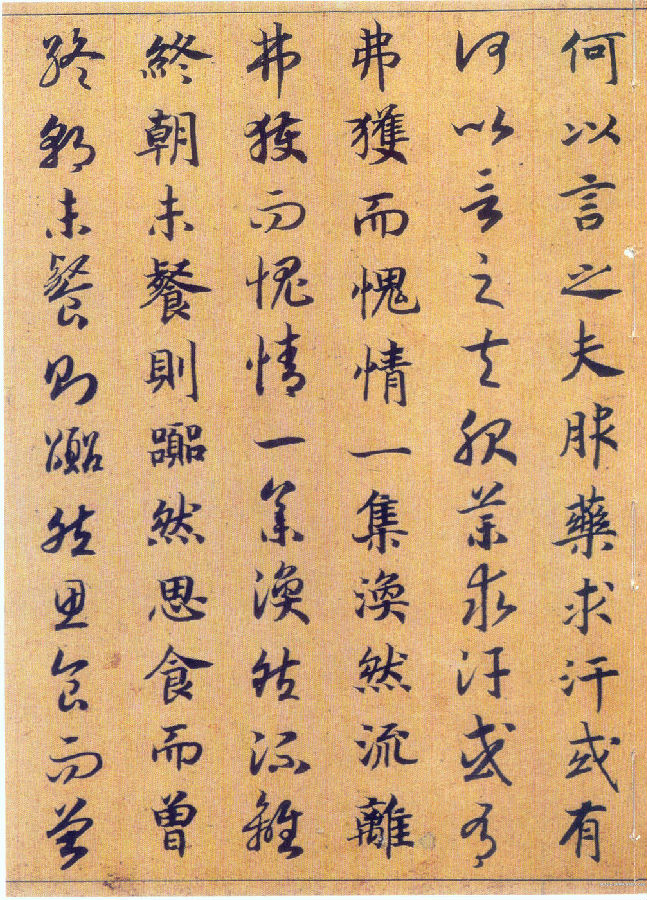 何以言之夫服藥求汗或有
何以言之夫服藥求汗或有
弗獲而愧情一集渙然流離
弗獲而愧情一集渙然流離
終朝未餐則然思食而曾
終朝未餐則然思食而曾